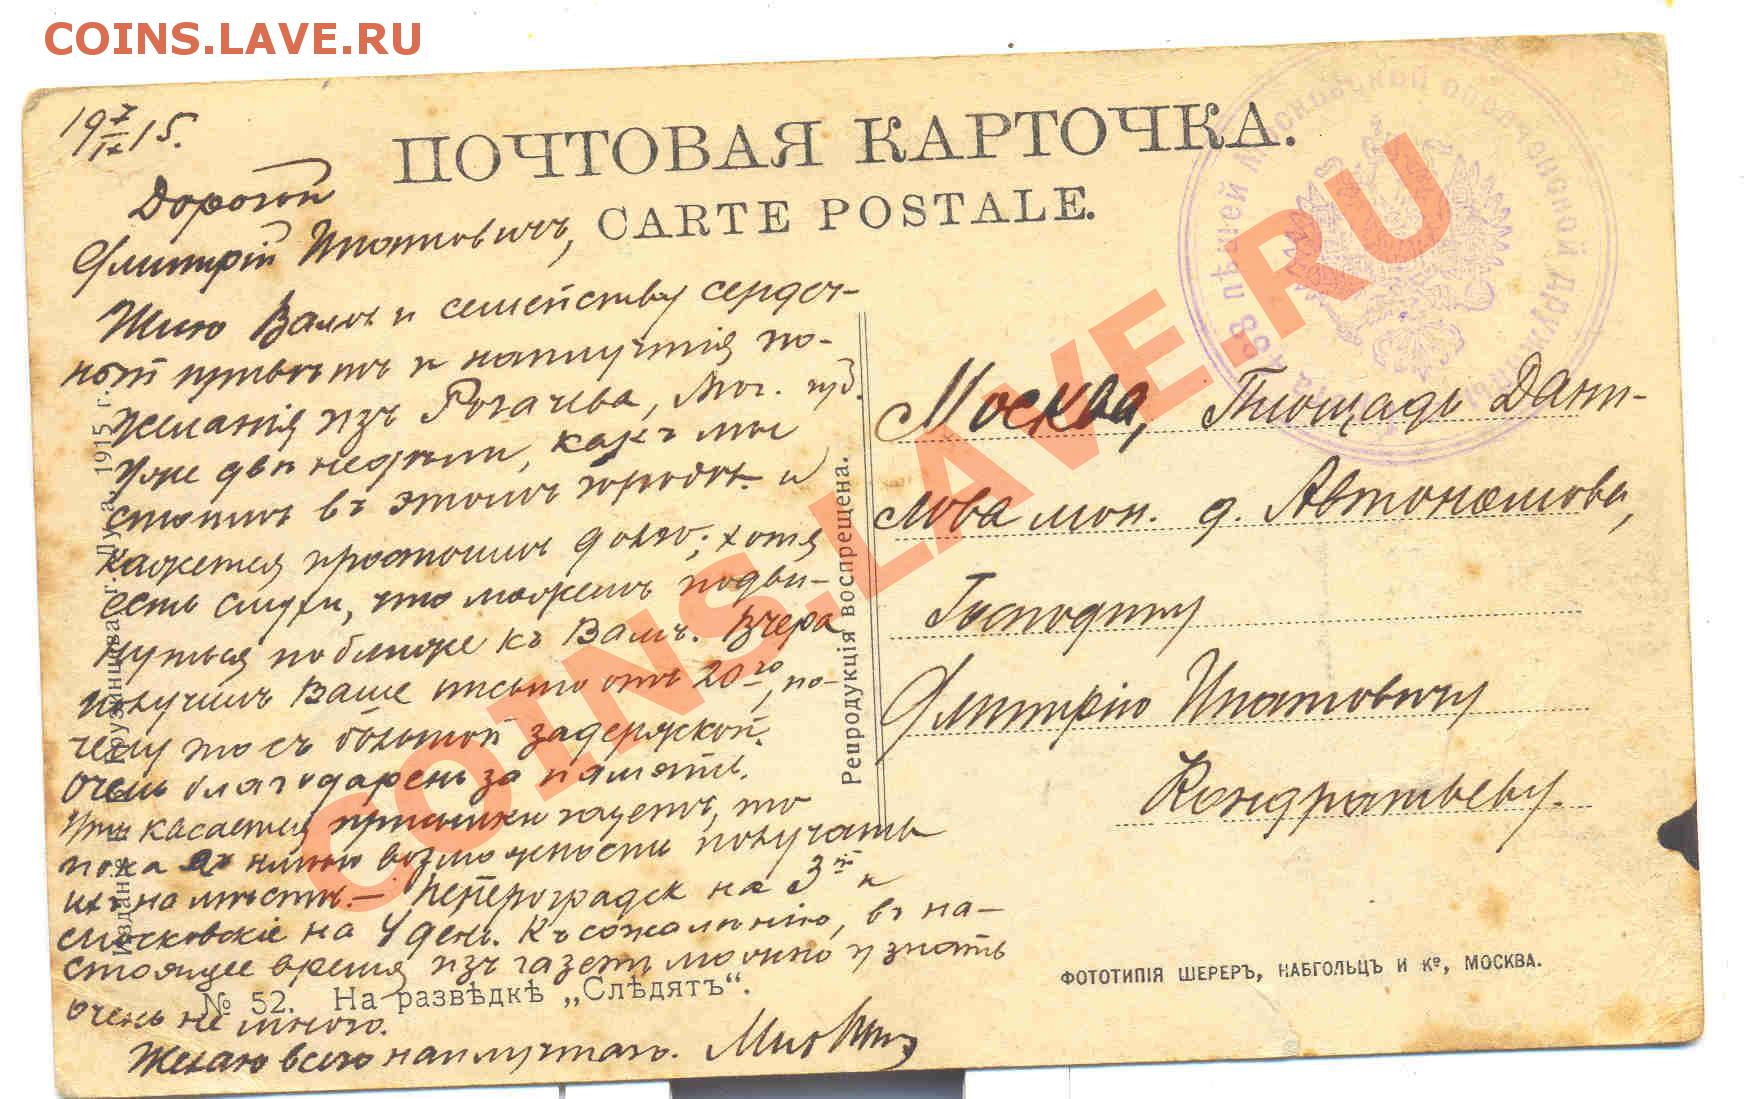 COINS.LAVE.RU
19 7/IX 15.
ПОЧТОВАЯ КАРТОЧКА.
CARTE POSTALE.
Дорогой
Дмитрій Ипатовичъ,
Шлю Вамъ и семейству сердеч-
ный привѣтъ и наилучшія по-
желанія изъ Рогачева, Мог. губ.
Уже двѣ недѣли, какъ мы
стоимъ въ этомъ городѣ и
кажется простоимъ долго; хотя
есть слухи, что можемъ подви-
нуться поближе къ Вамъ. Вчера
получилъ Ваше письмо отъ 20го, по-
чему то съ большой задержкой.
Очень благодаренъ за память.
Что касается присылки газетъ, то
пока имѣю возможность получать
ихъ на мѣстѣ. — Петроградск на 3й и
Московскіе на 4 день. Къ сожалѣнію, въ на-
стоящее время изъ газетъ можно узнать
очень не много.
Желаю всего наилучшаго.
Изданіе Грузинцева, г. Луга, 1915 г.
№ 52. На развѣдкѣ „Слѣдятъ“.
Репродукція воспрещена.
Москва, Площадь Дани-
лова мон. д. Автономова,
Господину
Дмитрію Ипатовичу
Кондратьеву.
ФОТОТИПІЯ ШЕРЕРЪ, НАБГОЛЬЦЪ И Ко, МОСКВА.
пѣшей Московской ополченской дружины
COINS.LAVE.RU